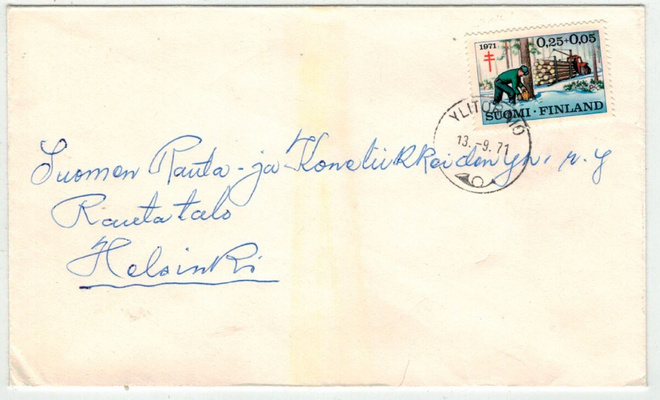 1971 0,25+0,05
SUOMI · FINLAND
13.-9.71
Suomen Rauta- ja Koneliikkeiden yh. r.y
Rautatalo
Helsinki